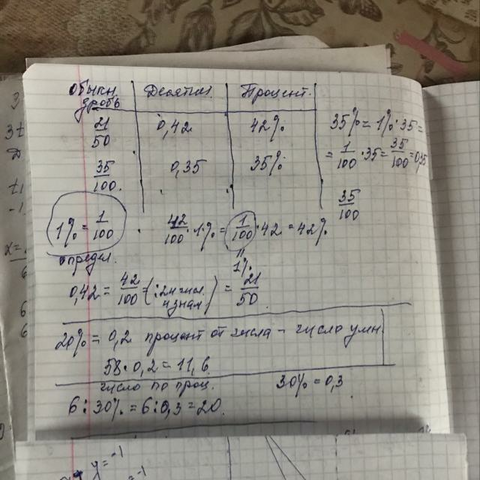 Обыкн. дробь | Десятич | Процент.
21/50 | 0,42 | 42%
35/100 | 0,35 | 35%
35% = 1%·35 =
= 1/100 · 35 = 35/100 = 0,35
35/100
1% = 1/100
определ.
42/100 · 1% = 1/100 · 42 = 42%
1%
0,42 = 42/100 = (:2 = 21/50
20% = 0,2 процент от числа - число умн.
58·0,2 = 11,6
число по проц.
30% = 0,3
6 : 30% = 6 : 0,3 = 20.
y = -1